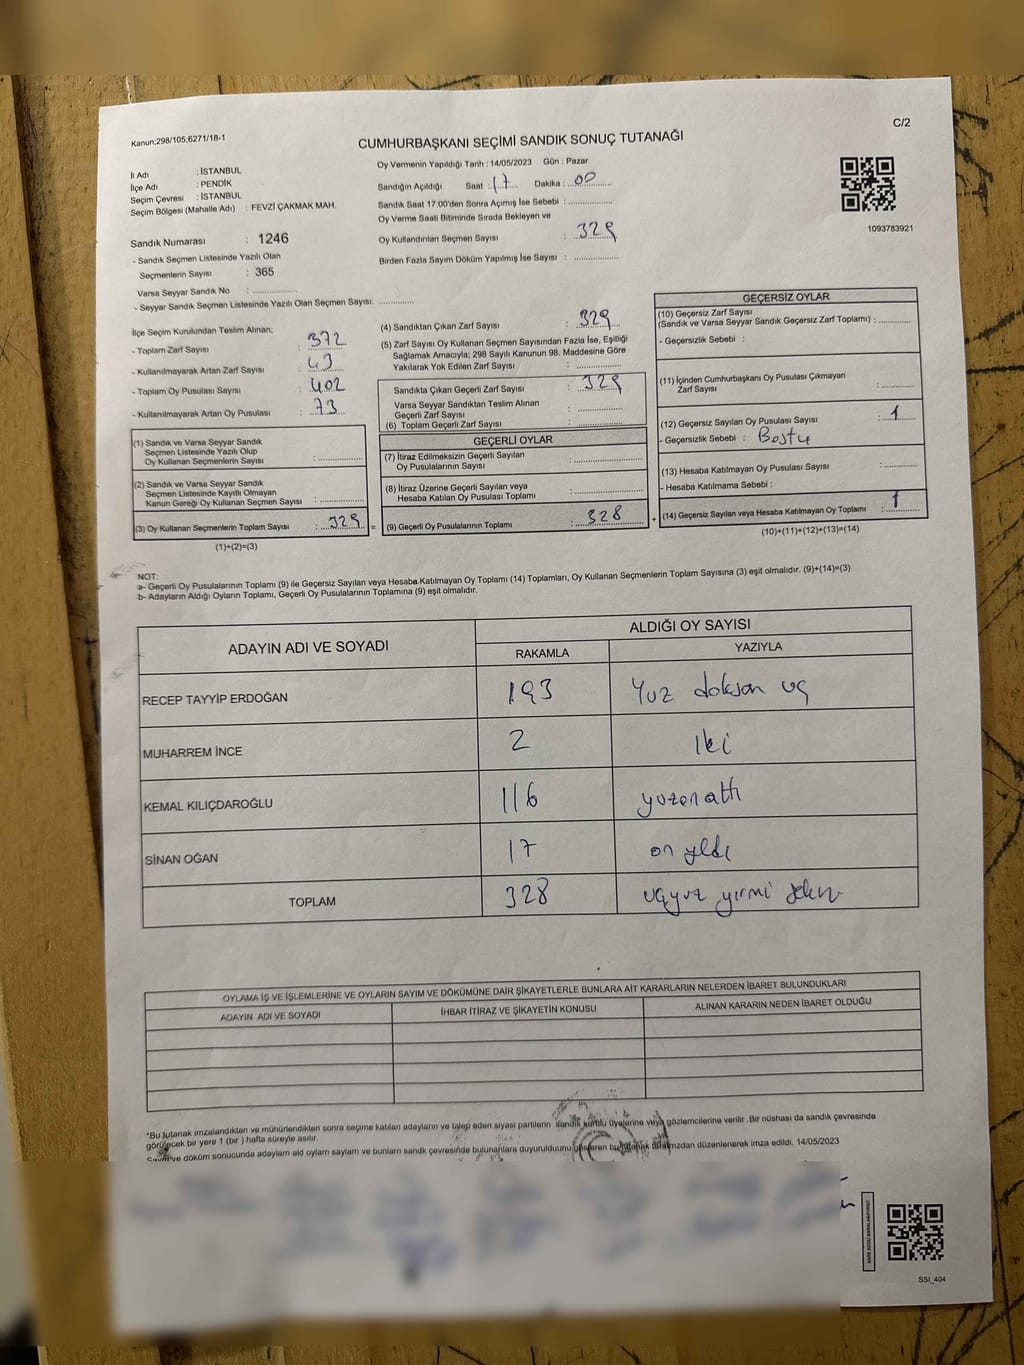 Kanun;298/105;6271/18-1
C/2
CUMHURBAŞKANI SEÇİMİ SANDIK SONUÇ TUTANAĞI
İl Adı : İSTANBUL
İlçe Adı : PENDİK
Seçim Çevresi : İSTANBUL
Seçim Bölgesi (Mahalle Adı) : FEVZİ ÇAKMAK MAH.
Sandık Numarası : 1246
- Sandık Seçmen Listesinde Yazılı Olan
Seçmenlerin Sayısı : 365
Varsa Seyyar Sandık No :
- Seyyar Sandık Seçmen Listesinde Yazılı Olan Seçmen Sayısı:
Oy Vermenin Yapıldığı Tarih : 14/05/2023 Gün : Pazar
Sandığın Açıldığı Saat : 17 Dakika : 00
Sandık Saat 17:00'den Sonra Açımış İse Sebebi :
Oy Verme Saati Bitiminde Sırada Bekleyen ve
Oy Kullandırılan Seçmen Sayısı : 329
Birden Fazla Sayım Döküm Yapılmış İse Sayısı :
1093783921
İlçe Seçim Kurulundan Teslim Alınan;
- Toplam Zarf Sayısı : 372
- Kullanılmayarak Artan Zarf Sayısı : 43
- Toplam Oy Pusulası Sayısı : 402
- Kullanılmayarak Artan Oy Pusulası : 73
(1) Sandık ve Varsa Seyyar Sandık
Seçmen Listesinde Yazılı Olup
Oy Kullanan Seçmenlerin Sayısı :
(2) Sandık ve Varsa Seyyar Sandık
Seçmen Listesinde Kayıtlı Olmayan
Kanun Gereği Oy Kullanan Seçmen Sayısı :
(3) Oy Kullanan Seçmenlerin Toplam Sayısı : 329 =
(1)+(2)=(3)
(4) Sandıktan Çıkan Zarf Sayısı : 329
(5) Zarf Sayısı Oy Kullanan Seçmen Sayısından Fazla İse, Eşitliği
Sağlamak Amacıyla; 298 Sayılı Kanunun 98. Maddesine Göre
Yakılarak Yok Edilen Zarf Sayısı :
Sandıkta Çıkan Geçerli Zarf Sayısı : 329
Varsa Seyyar Sandıktan Teslim Alınan
Geçerli Zarf Sayısı :
(6) Toplam Geçerli Zarf Sayısı :
GEÇERLİ OYLAR
(7) İtiraz Edilmeksizin Geçerli Sayılan
Oy Pusulalarının Sayısı :
(8) İtiraz Üzerine Geçerli Sayılan veya
Hesaba Katılan Oy Pusulası Toplamı :
(9) Geçerli Oy Pusulalarının Toplamı : 328 +
GEÇERSİZ OYLAR
(10) Geçersiz Zarf Sayısı
(Sandık ve Varsa Seyyar Sandık Geçersiz Zarf Toplamı) :
- Geçersizlik Sebebi :
(11) İçinden Cumhurbaşkanı Oy Pusulası Çıkmayan
Zarf Sayısı :
(12) Geçersiz Sayılan Oy Pusulası Sayısı : 1
- Geçersizlik Sebebi : Boştu
(13) Hesaba Katılmayan Oy Pusulası Sayısı :
- Hesaba Katılmama Sebebi :
(14) Geçersiz Sayılan veya Hesaba Katılmayan Oy Toplamı : 1
(10)+(11)+(12)+(13)=(14)
NOT:
a- Geçerli Oy Pusulalarının Toplamı (9) ile Geçersiz Sayılan veya Hesaba Katılmayan Oy Toplamı (14) Toplamları, Oy Kullanan Seçmenlerin Toplam Sayısına (3) eşit olmalıdır. (9)+(14)=(3)
b- Adayların Aldığı Oyların Toplamı, Geçerli Oy Pusulalarının Toplamına (9) eşit olmalıdır.
ADAYIN ADI VE SOYADI
ALDIĞI OY SAYISI
RAKAMLA YAZIYLA
RECEP TAYYİP ERDOĞAN 193 Yüz doksan üç
MUHARREM İNCE 2 İki
KEMAL KILIÇDAROĞLU 116 yüzonaltı
SİNAN OĞAN 17 on yedi
TOPLAM 328 üçyüz yirmi sekiz
OYLAMA İŞ VE İŞLEMLERİNE VE OYLARIN SAYIM VE DÖKÜMÜNE DAİR ŞİKAYETLERLE BUNLARA AİT KARARLARIN NELERDEN İBARET BULUNDUKLARI
ADAYIN ADI VE SOYADI İHBAR İTİRAZ VE ŞİKAYETİN KONUSU ALINAN KARARIN NEDEN İBARET OLDUĞU
*Bu tutanak imzalandıktan ve mühürlendikten sonra seçime katılan adayların ve talep eden siyasi partilerin sandık kurulu üyelerine veya gözlemcilerine verilir .Bir nüshası da sandık çevresinde
görülecek bir yere 1 (bir ) hafta süreyle asılır.
ve döküm sonucunda adayların ald oyların sayların ve bunların sandk çevresinde bulunanlara duyurulduunu gösteren bu tutanak düzenlenerek imza edildi. 14/05/2023
SSI_404